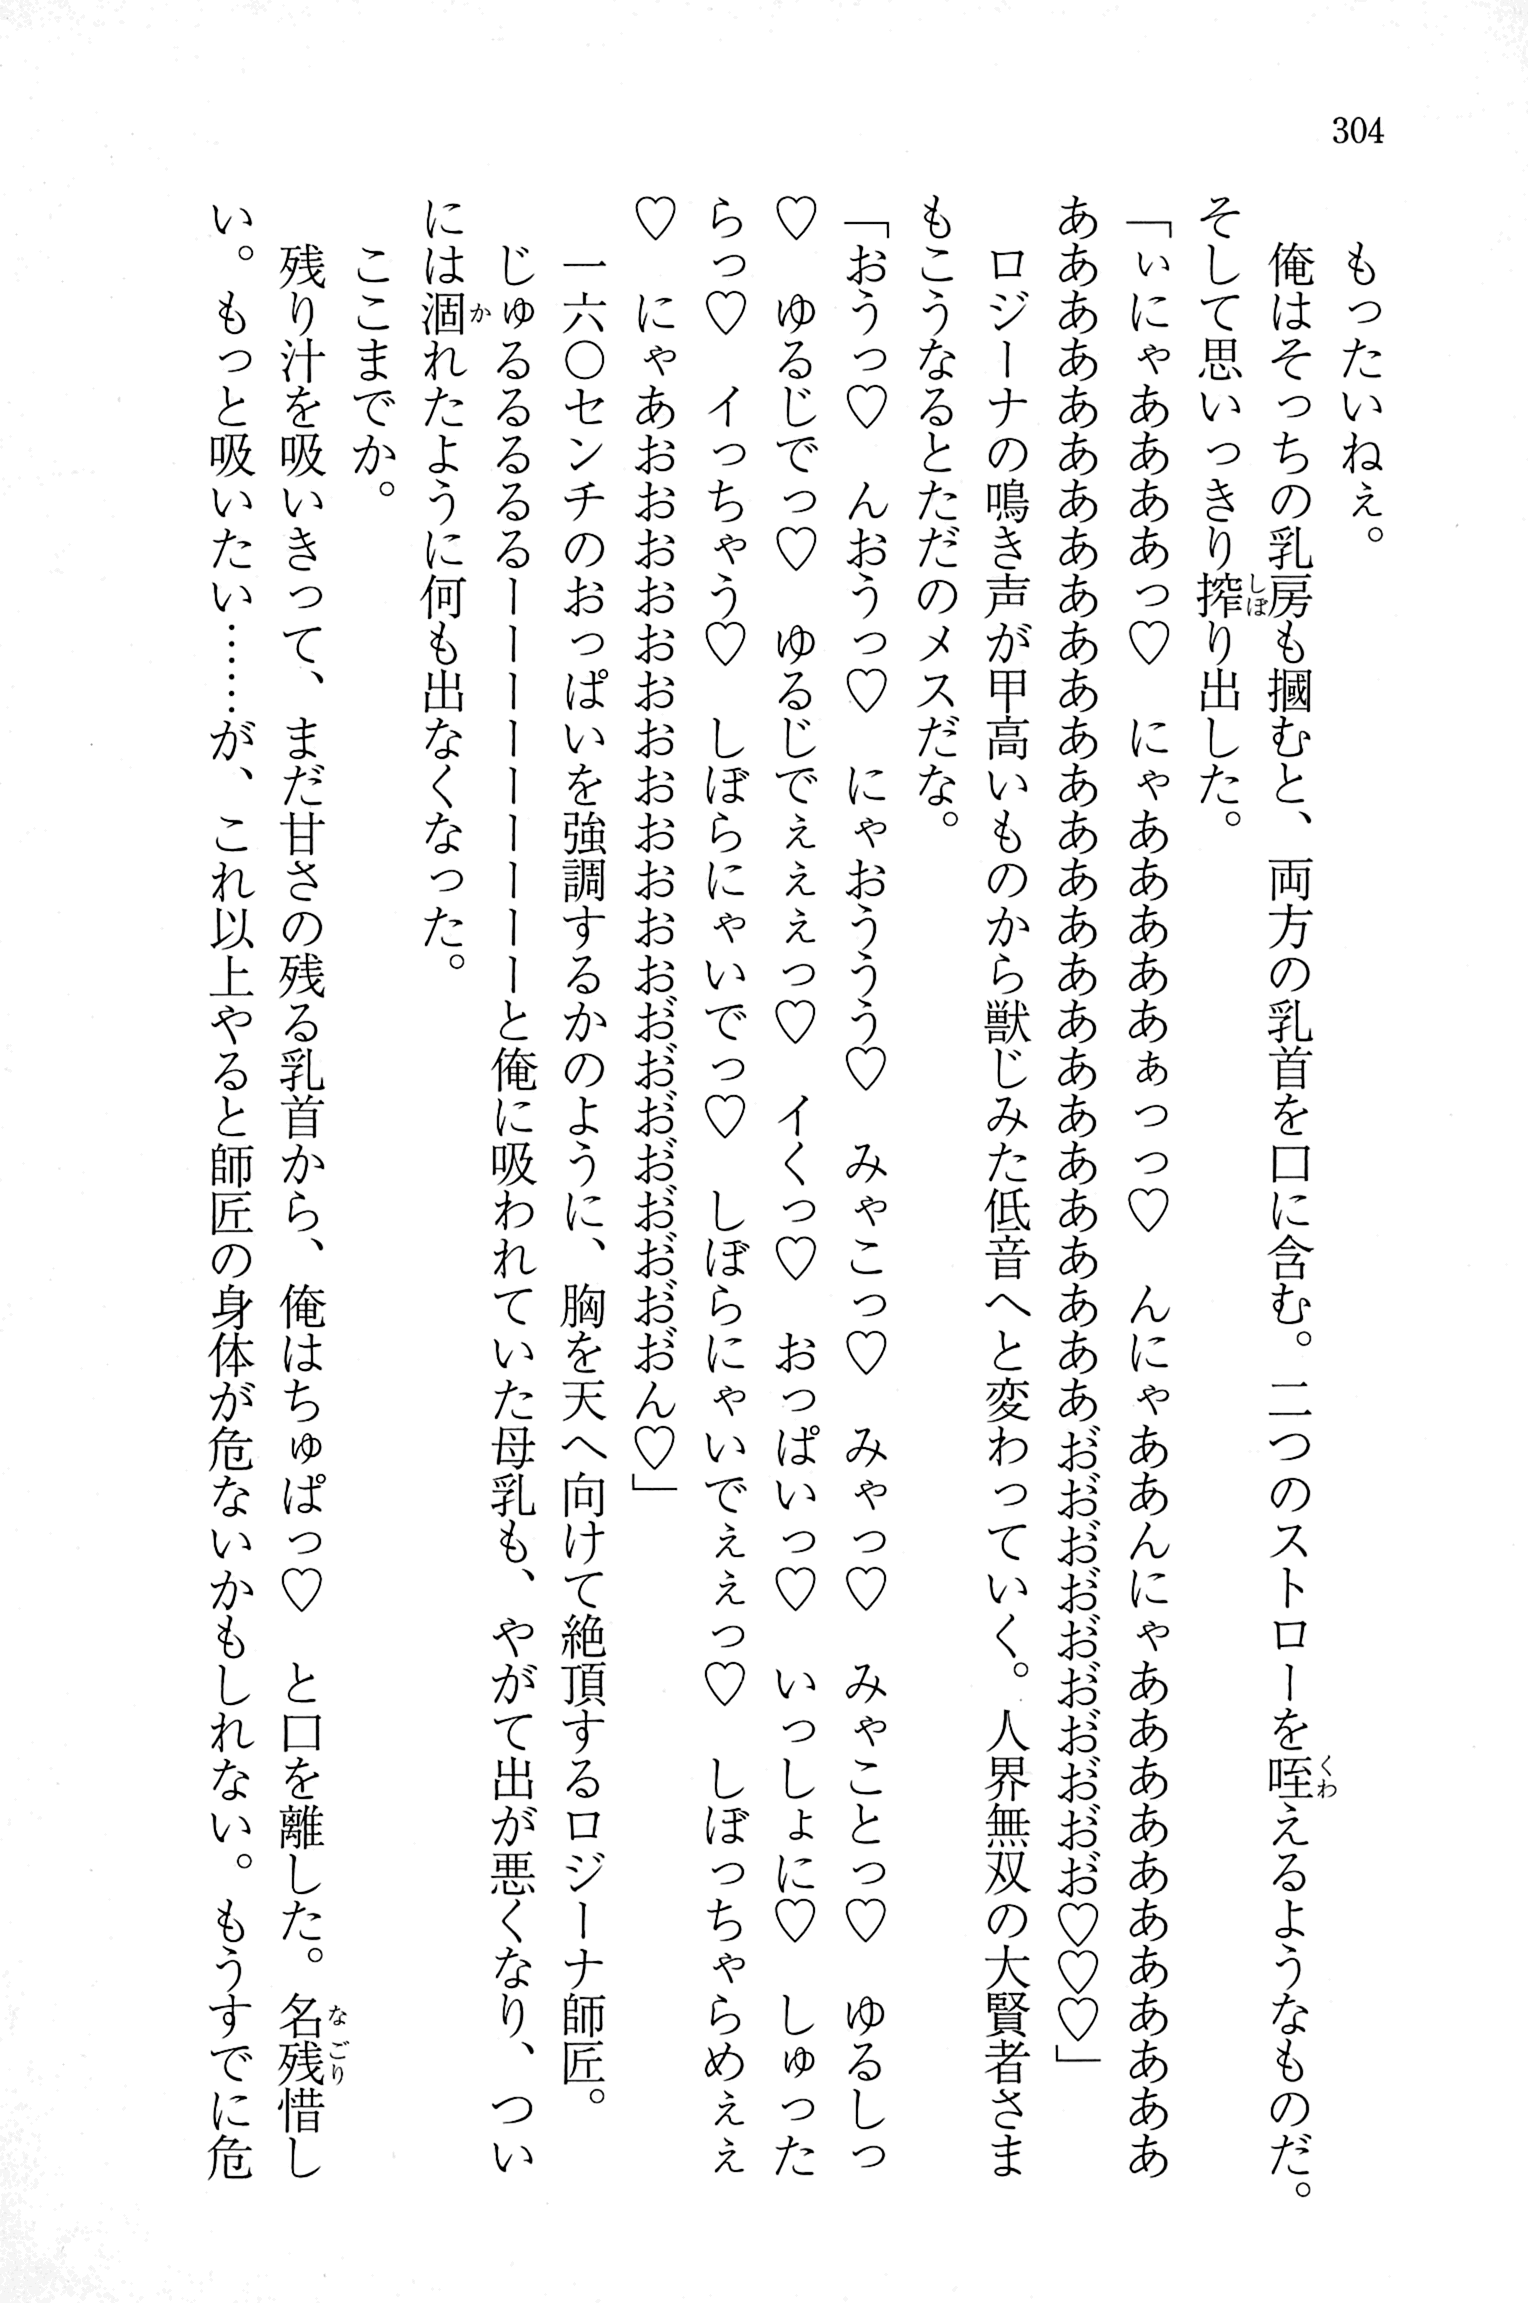 304
もったいねぇ。
俺はそっちの乳房も摑むと、両方の乳首を口に含む。二つのストローを咥えるようなものだ。
そして思いっきり搾り出した。
「ぃにゃああああっ♡　にゃあああああぁっっ♡　んにゃああんにゃあああああああああああ
ああああああああああああああああああああああああああお゛お゛お゛お゛お゛お゛お゛お゛お゛お゛♡♡♡」
ロジーナの鳴き声が甲高いものから獣じみた低音へと変わっていく。人界無双の大賢者さま
もこうなるとただのメスだな。
「おうっ♡　んおうっ♡　にゃおううう♡　みゃこっ♡　みゃっ♡　みゃことっ♡　ゆるしっ
♡　ゆるじでっ♡　ゆるじでぇぇぇっ♡　イくっ♡　おっぱいっ♡　いっしょに♡　しゅった
らっ♡　イっちゃう♡　しぼらにゃいでっ♡　しぼらにゃいでぇぇっ♡　しぼっちゃらめぇぇ
♡　にゃあおおおおおおおおおおおおお゛お゛お゛お゛お゛お゛お゛お゛ん♡」
一六〇センチのおっぱいを強調するかのように、胸を天へ向けて絶頂するロジーナ師匠。
じゅるるるるるーーーーーーーーーと俺に吸われていた母乳も、やがて出が悪くなり、つい
には涸れたように何も出なくなった。
ここまでか。
残り汁を吸いきって、まだ甘さの残る乳首から、俺はちゅぱっ♡　と口を離した。名残惜し
い。もっと吸いたい……が、これ以上やると師匠の身体が危ないかもしれない。もうすでに危